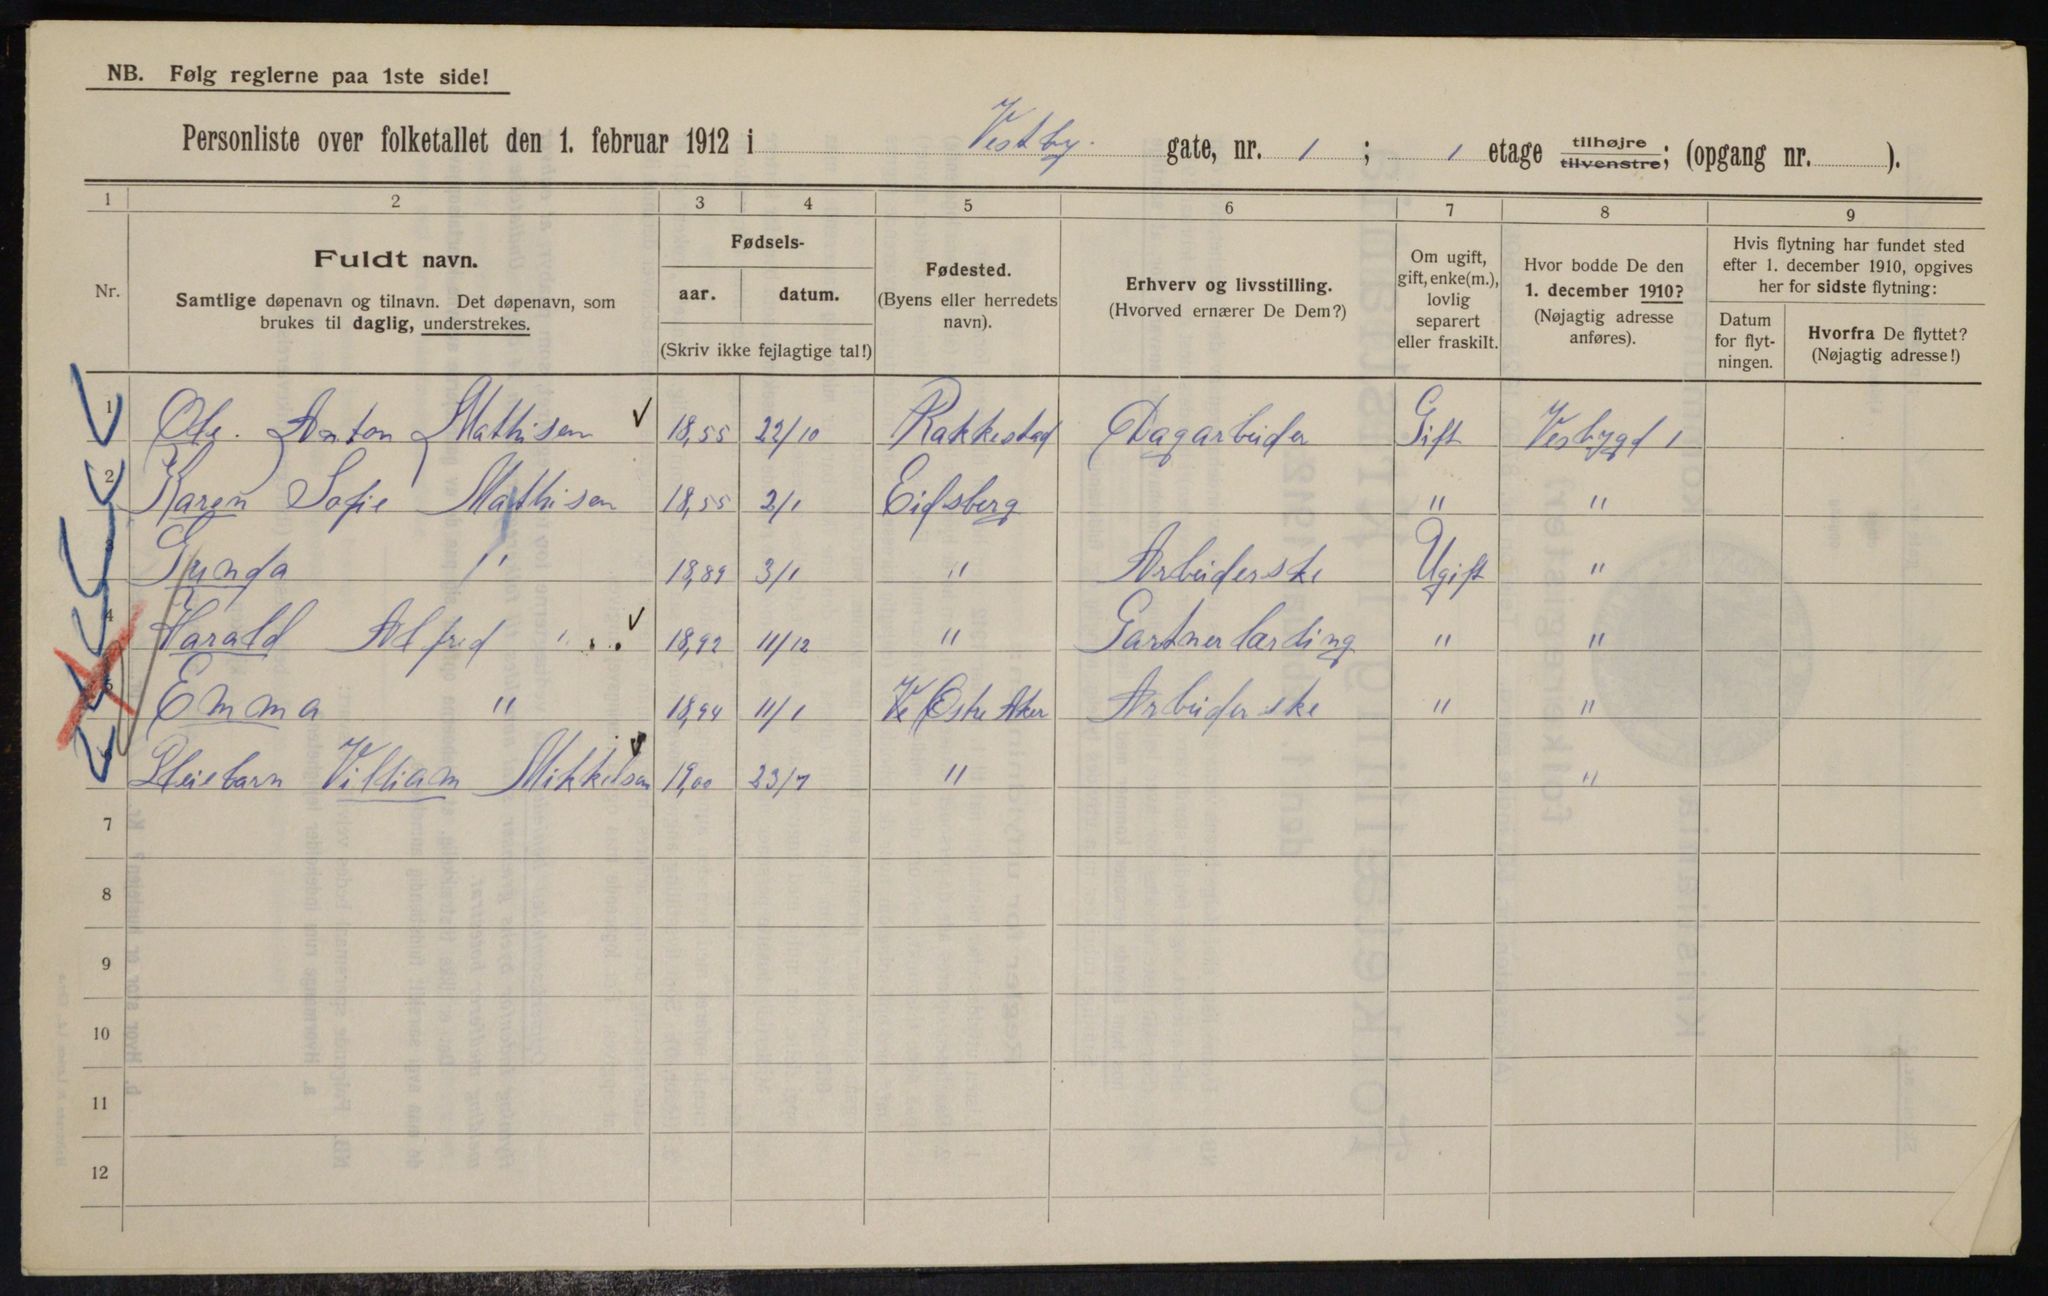 NB. Følg reglerne paa 1ste side!
Personliste over folketallet den 1. februar 1912 i Vestby. gate, nr. 1; 1 etage tilhøjre tilvenstre; (opgang nr. ).
1 2 3 4 5 6 7 8 9
Nr.
Fuldt navn.
Samtlige døpenavn og tilnavn. Det døpenavn, som
brukes til daglig, understrekes.
Fødsels-
aar. datum.
(Skriv ikke fejlagtige tal!)
Fødested.
(Byens eller herredets
navn).
Erhverv og livsstilling.
(Hvorved ernærer De Dem?)
Om ugift,
gift, enke(m.),
lovlig
separert
eller fraskilt.
Hvor bodde De den
1. december 1910?
(Nøjagtig adresse
anføres).
Hvis flytning har fundet sted
efter 1. december 1910, opgives
her for sidste flytning:
Datum
for flyt-
ningen.
Hvorfra De flyttet?
(Nøjagtig adresse!)
1 Ole. Anton Mathisen 18,55 22/10 Rakkestad Dagarbeider Gift Vesbygd 1
2 Karen Sofie Mathisen 18,55 2/1 Eidsberg " "
3 Gunda " 18,89 3/1 " Arbeiderske Ugift "
4 Harald Alfred " 18,92 11/12 " Gartnerlærling " "
5 Emma " 18,94 11/1 Østre Aker Arbeiderske " "
6 Pleiebarn Villiam Mikkelsen 19,00 23/7 " "
7
8
9
10
11
12